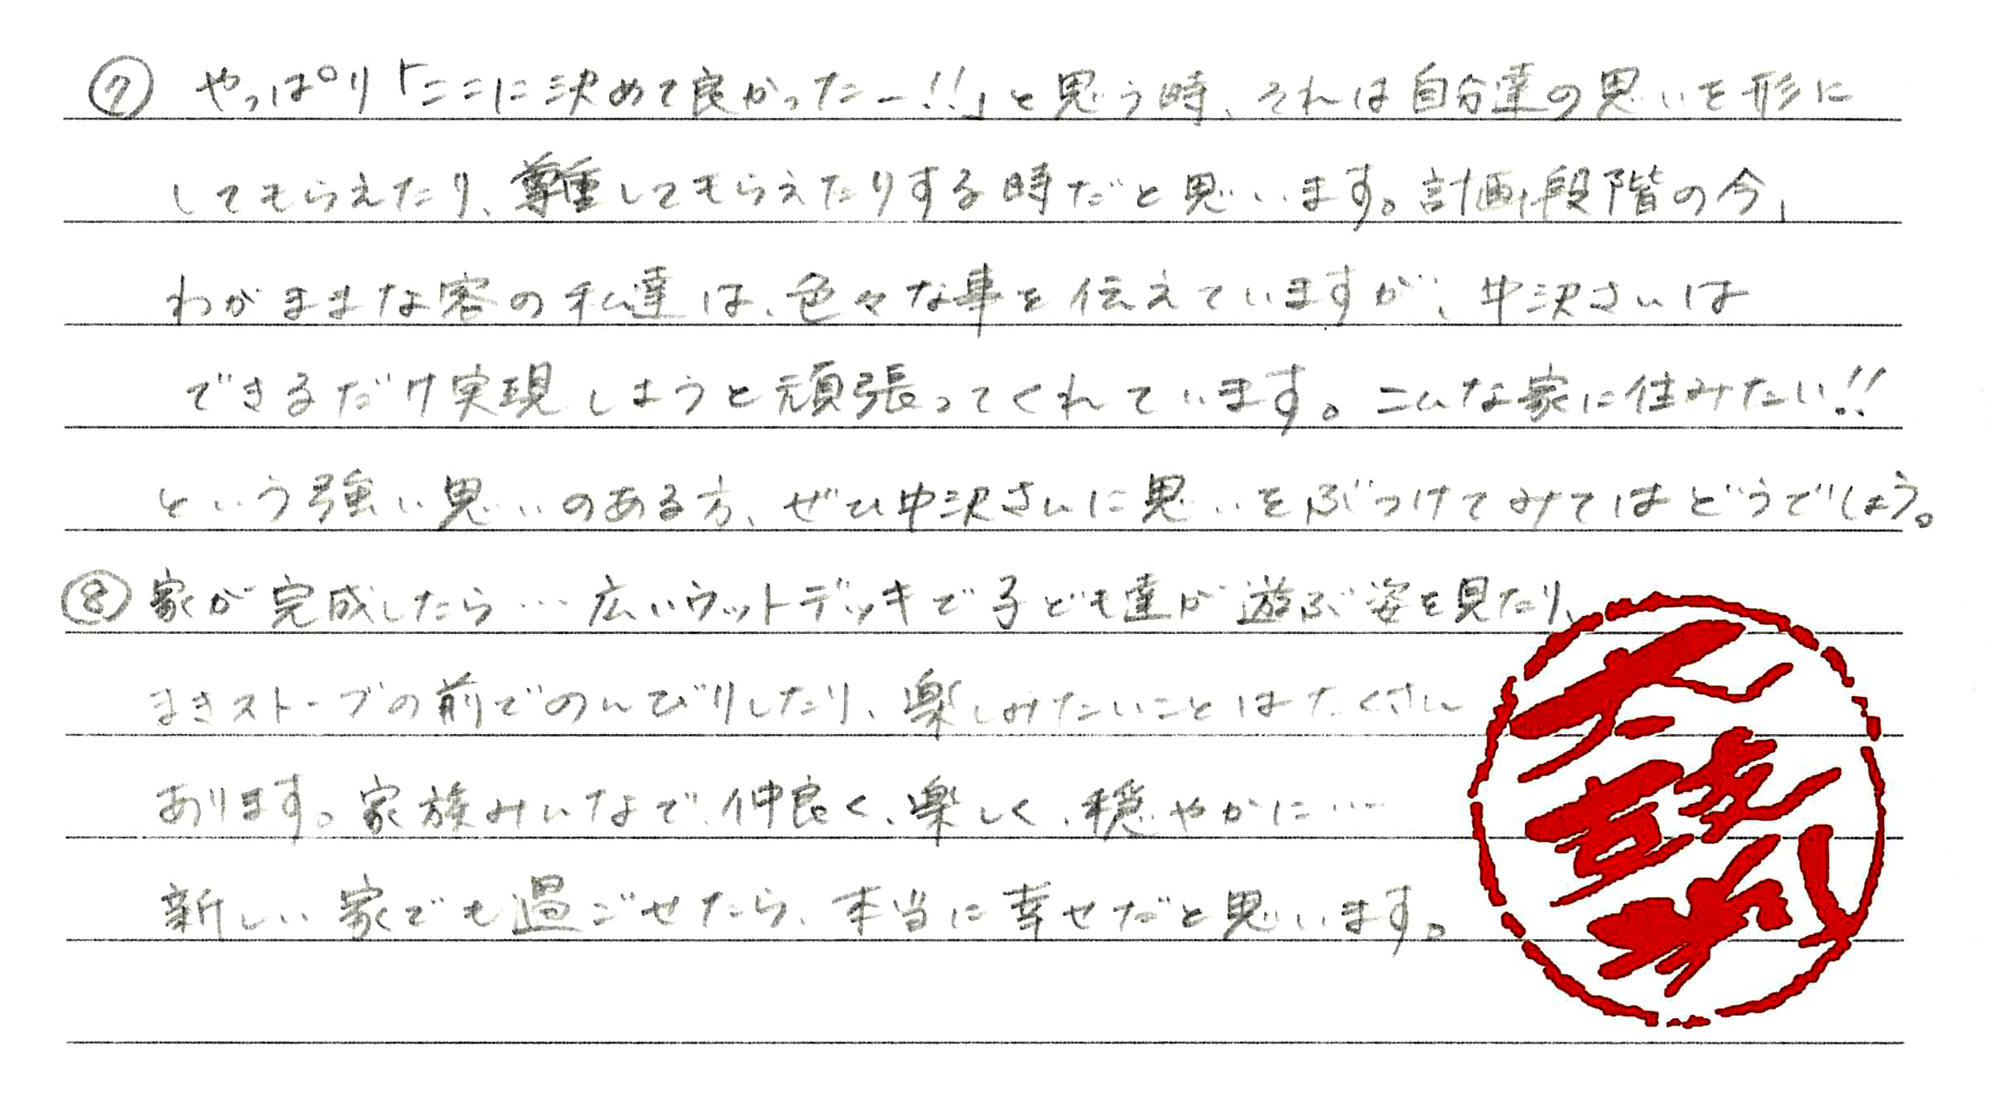 ⑦ やっぱり「ここに決めて良かったー!!」と思う時、それは自分達の思いを形に
してもらえたり、尊重してもらえたりする時だと思います。計画段階の今、
わがままな客の私達は、色々な事を伝えていますが、中沢さんは
できるだけ実現しようと頑張ってくれています。こんな家に住みたい!!
という強い思いのある方、ぜひ中沢さんに思いをぶつけてみてはどうでしょう。
⑧ 家が完成したら…広いウットデッキで子ども達が遊ぶ姿を見たり、
まきストーブの前でのんびりしたり、楽しみたいことはたくさん
あります。家族みんなで、仲良く、楽しく、穏やかに…
新しい家でも過ごせたら、本当に幸せだと思います。